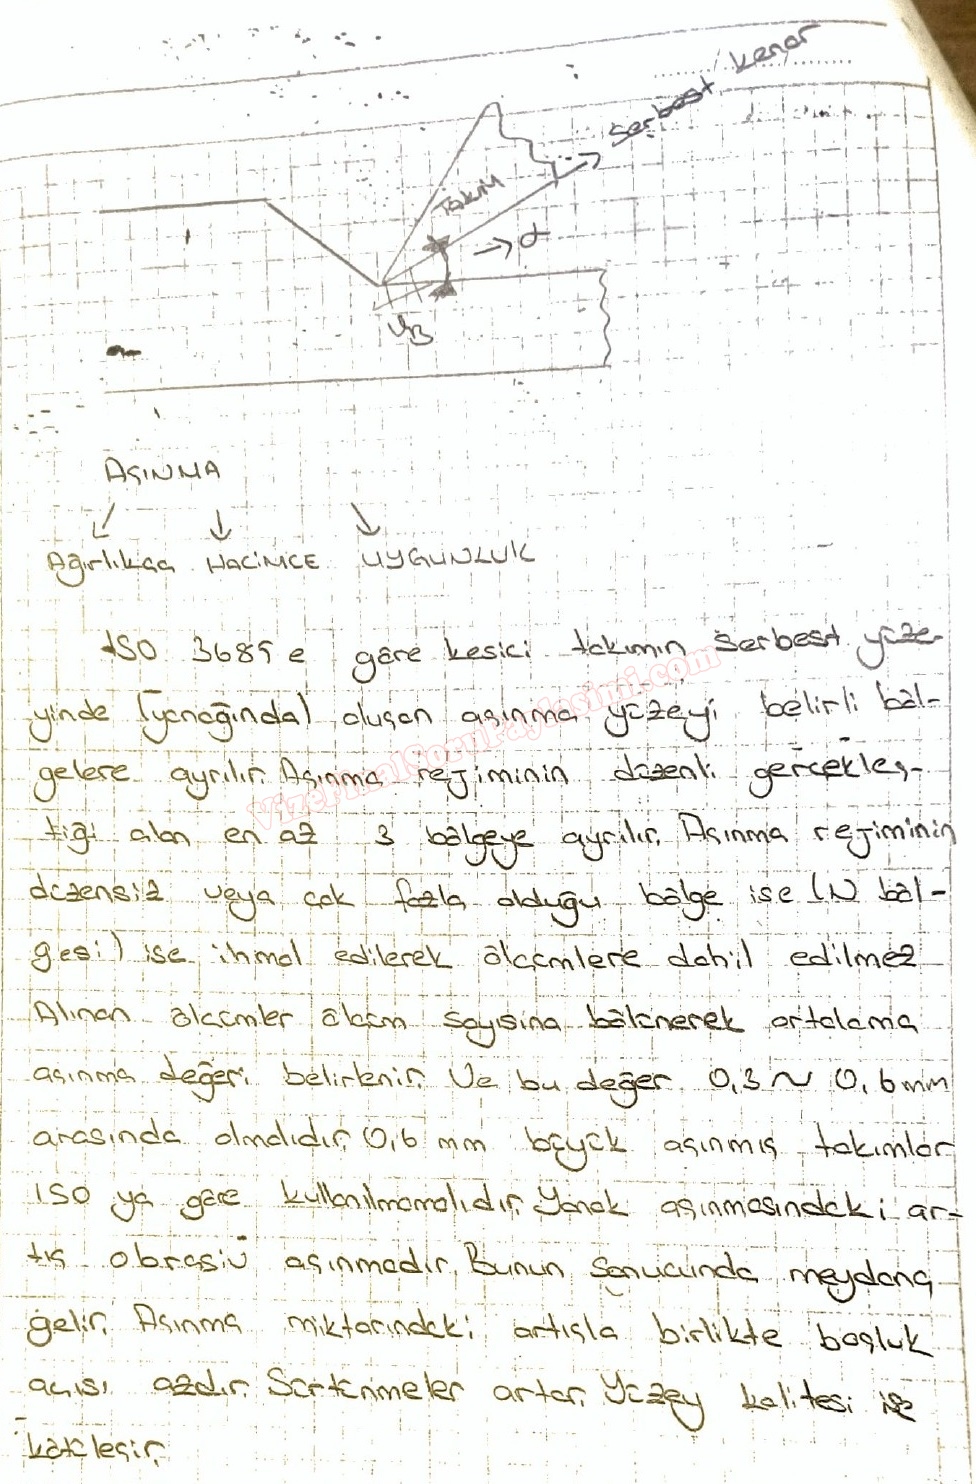 Serbest kenar
Takım
α
VB
AŞINMA
Ağırlıkça HACİMCE UYGUNLUK
ISO 3685 e göre kesici takımın serbest yüze-
yinde (yanağında) oluşan aşınma yüzeyi belirli böl-
gelere ayrılır. Aşınma rejiminin düzenli gerçekleş-
tiği alan en az 3 bölgeye ayrılır. Aşınma rejiminin
düzensiz veya çok fazla olduğu bölge ise (N böl-
gesi) ise ihmal edilerek ölçümlere dahil edilmez
Alınan ölçümler ölçüm sayısına bölünerek ortalama
aşınma değeri belirlenir. Ve bu değer 0,3 ~ 0,6 mm
arasında olmalıdır. 0,6 mm büyük aşınmış takımlar
ISO ya göre kullanılmamalıdır. Yanak aşınmasındaki ar-
tış obresiv aşınmadır. Bunun sonucunda meydana
gelir. Aşınma miktarındaki artışla birlikte boşluk
açısı azdır. Sürtünmeler artar. Yüzey kalitesi ise
kötüleşir.
VizeFinalSoruPaylasimi.com